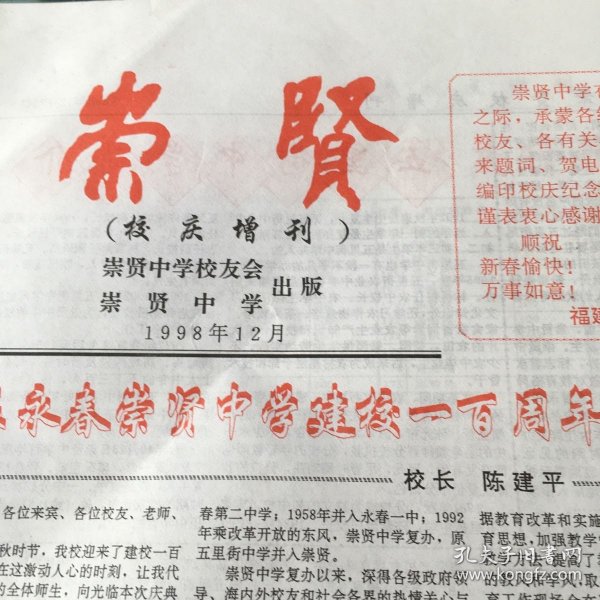 崇贤
(校庆增刊)
崇贤中学校友会
崇贤中学
出版
1998年12月
崇贤中学
之际，承蒙各
校友、各有关
来题词、贺电
编印校庆纪念
谨表衷心感谢
顺祝
新春愉快！
万事如意！
福建
永春崇贤中学建校一百周年
校长 陈建平
各位来宾、各位校友、老师、
秋时节，我校迎来了建校一百
在这激动人心的时刻，让我代
的全体师生，向光临本次庆典
春第二中学；1958年并入永春一中；1992
年乘改革开放的东风，崇贤中学复办，原
五里街中学并入崇贤。
崇贤中学复办以来，深得各级政府领
导、海内外校友和社会各界的热情关心与
据教育改革和实施
育思想，加强教学
孔夫子旧书网